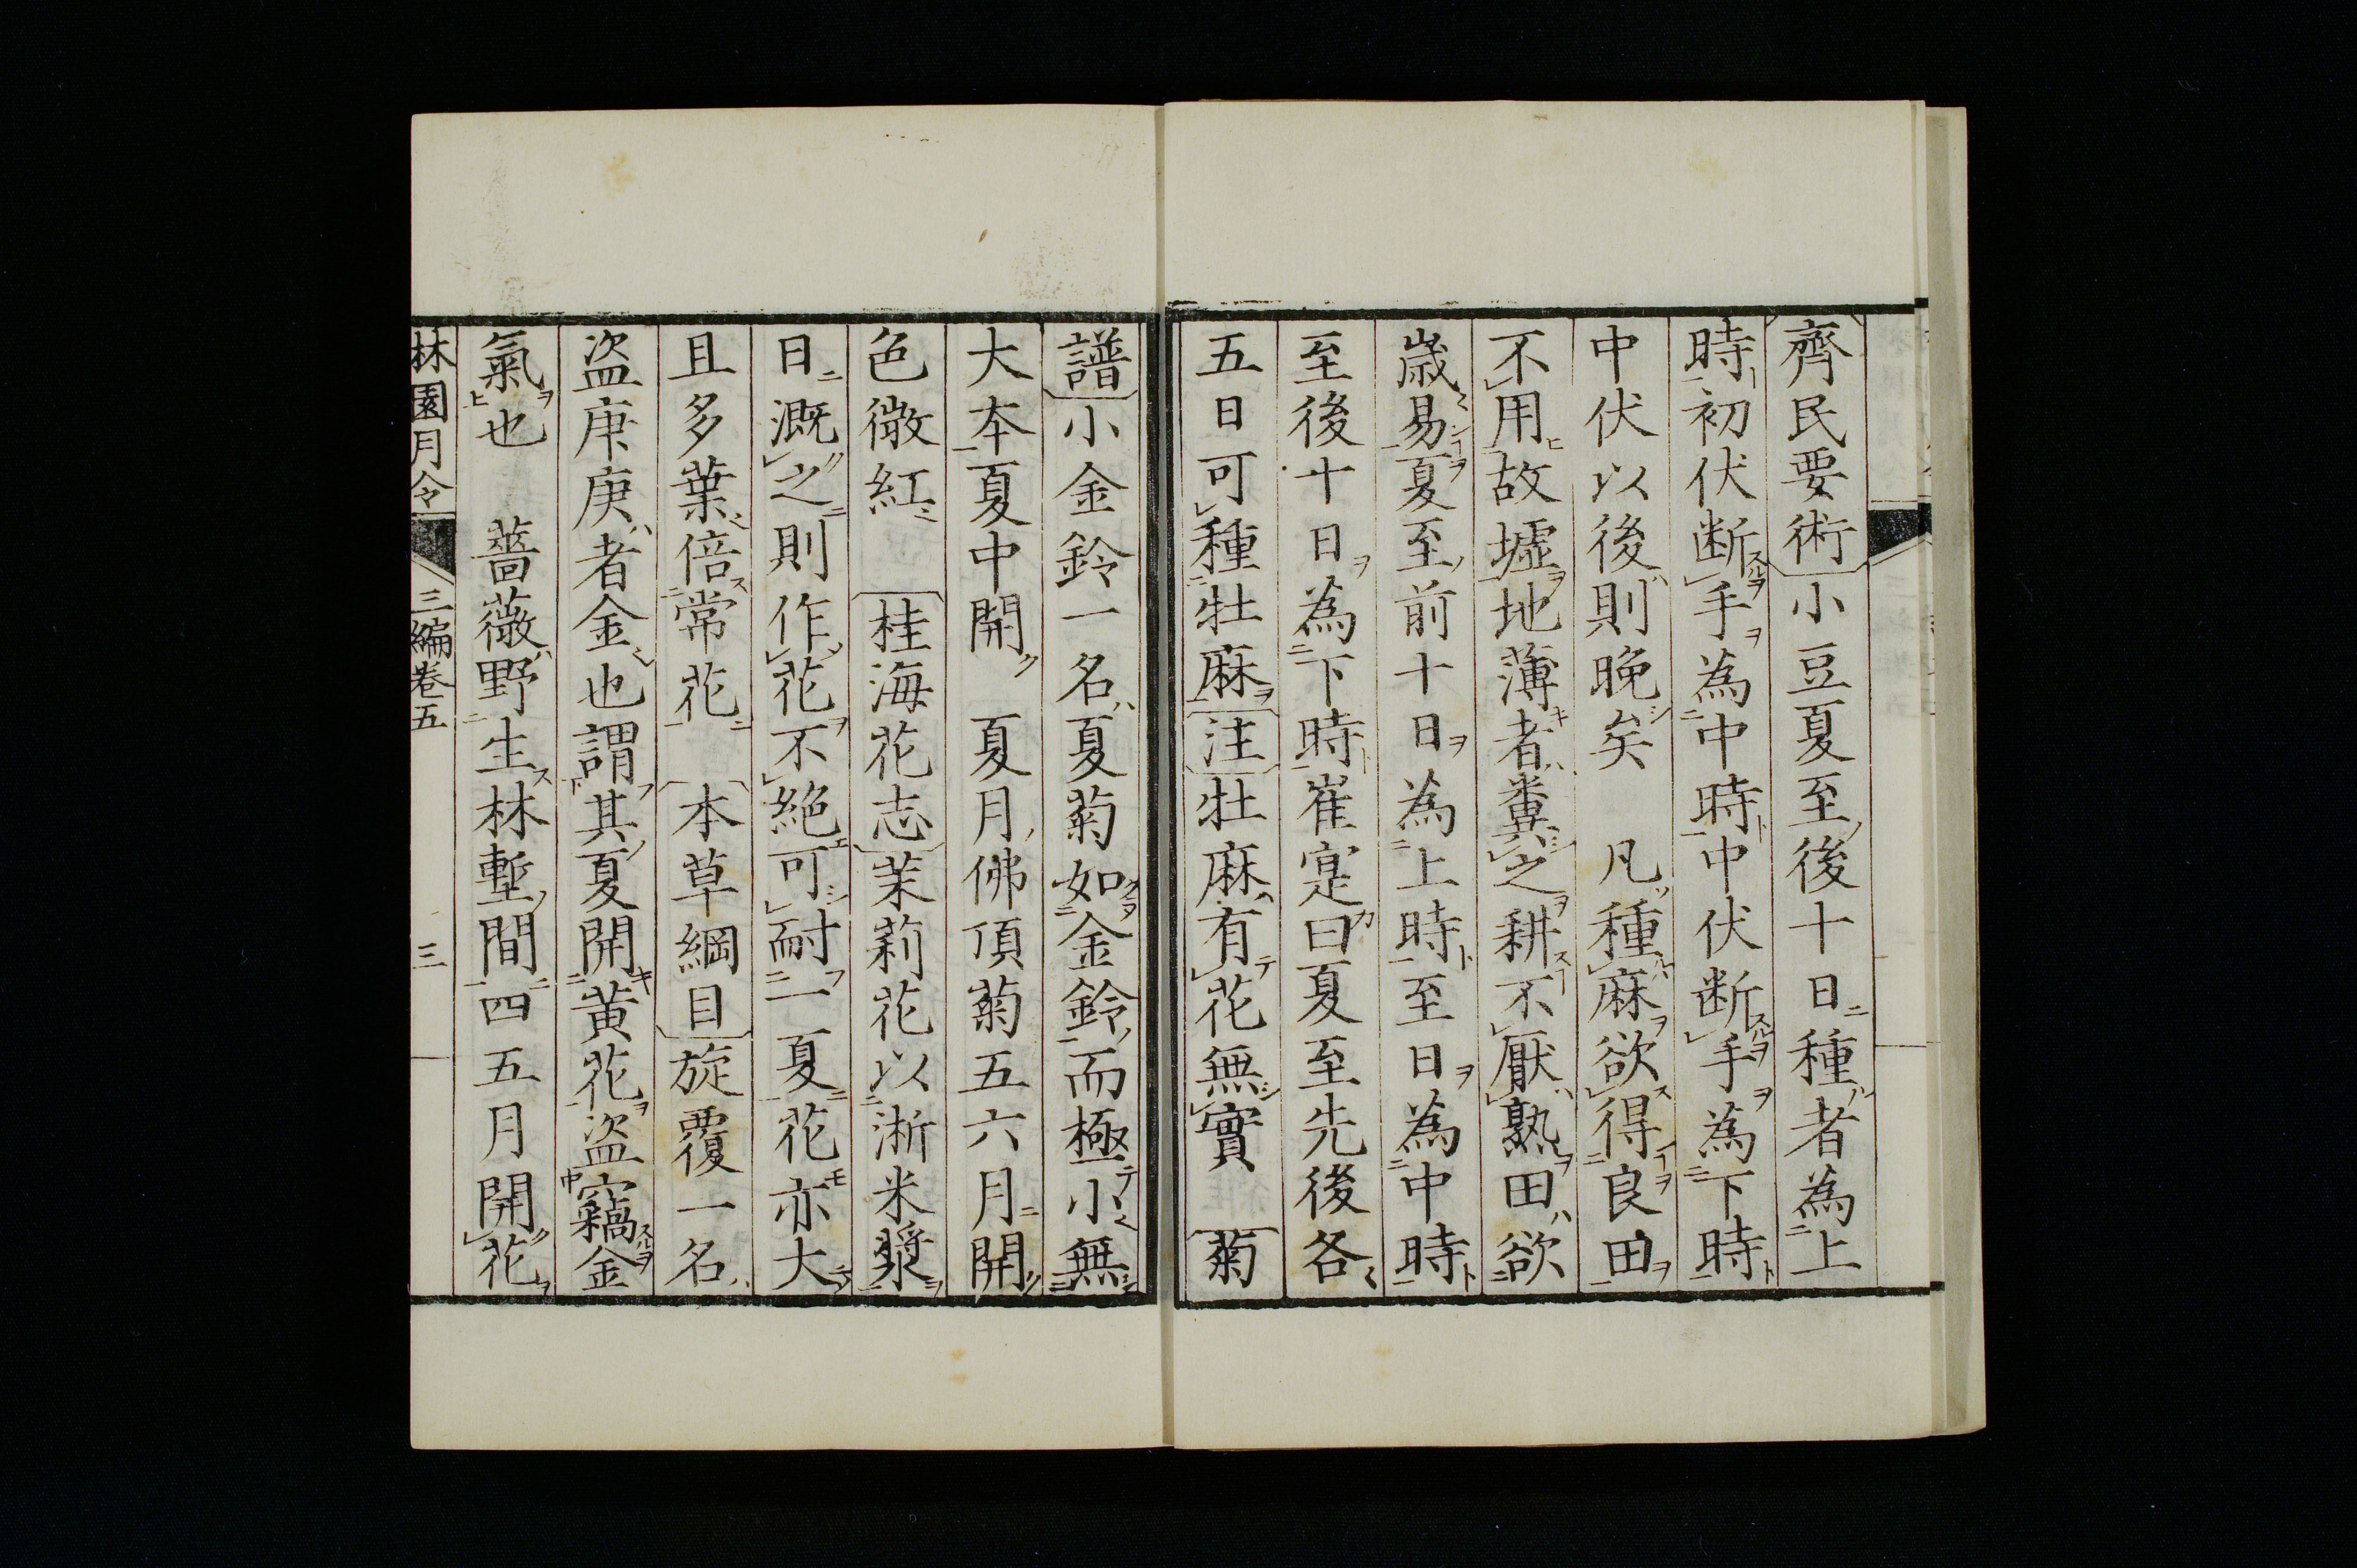 齊民要術小豆夏至後十日種者為上
時初伏断手為中時中伏断手為下時
中伏以後則晚矣 凡種麻欲得良田
不用故墟地薄者糞之耕不厭熟田欲
歳易夏至前十日為上時至日為中時
至後十日為下時崔寔曰夏至先後各
五日可種牡麻注牡麻有花無實 菊
譜小金鈴一名夏菊如金鈴而極小無
大本夏中開 夏月佛頂菊五六月開
色微紅 桂海花志茉莉花以淅米漿
日漑之則作花不絶可耐一夏花亦大
且多葉倍常花 本草綱目旋覆一名
盗庚庚者金也謂其夏開黄花盗竊金
氣也 薔薇野生林塹間四五月開花
林園月令 三編卷五 三